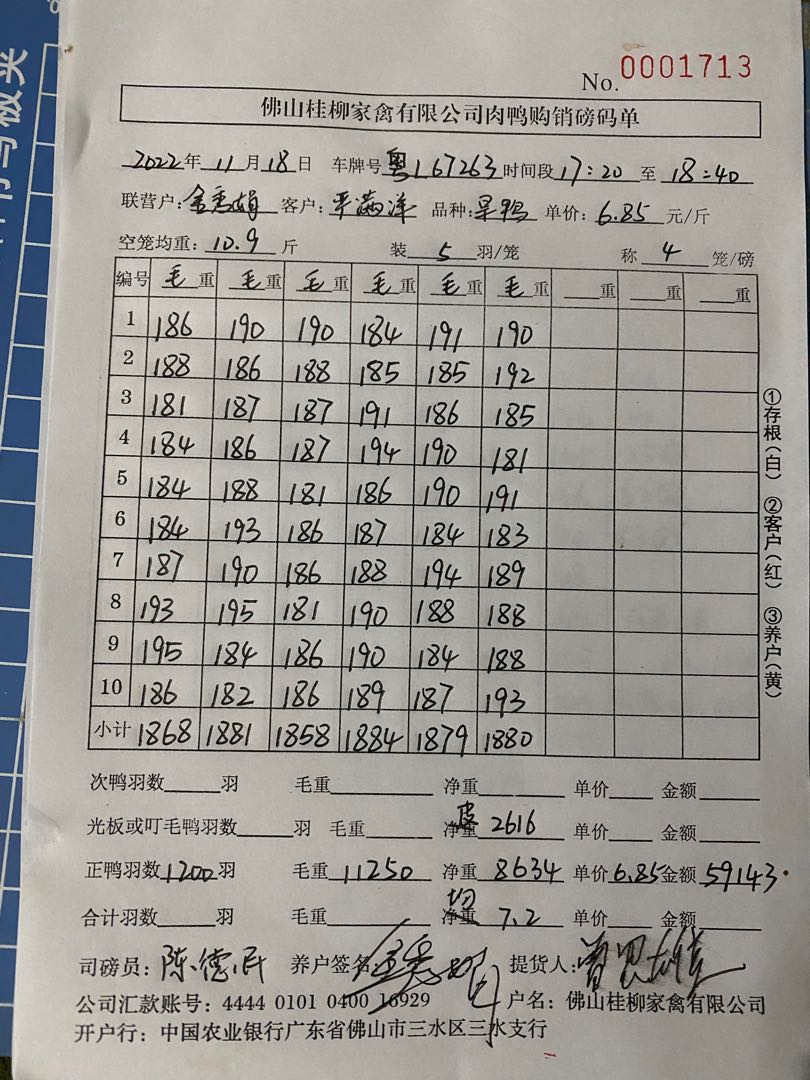 No. 0001713
佛山桂柳家禽有限公司肉鸭购销磅码单
2022年 11月 18日 车牌号 粤L67263 时间段 17:20 至 18:40
联营户: 金惠娟 客户: 平满洋 品种: 旱鸭 单价: 6.85 元/斤
空笼均重: 10.9 斤 装 5 羽/笼 称 4 笼/磅
编号 毛重 毛重 毛重 毛重 毛重 毛重 重 重 重
1 186 190 190 184 191 190
2 188 186 188 185 185 192
3 181 187 187 191 186 185
4 184 186 187 194 190 181
5 184 188 181 186 190 191
6 184 193 186 187 184 183
7 187 190 186 188 194 189
8 193 195 181 190 188 188
9 195 184 186 190 184 188
10 186 182 186 189 187 193
小计 1868 1881 1858 1884 1879 1880
①存根(白) ②客户(红) ③养户(黄)
次鸭羽数 羽 毛重 净重 单价 金额
光板或叮毛鸭羽数 羽 毛重 皮重 2616 单价 金额
正鸭羽数 1200 羽 毛重 11250 净重 8634 单价 6.85 金额 59143
合计羽数 羽 毛重 均重 7.2 单价 金额
司磅员: 陈德民 养户签名 提货人:
公司汇款账号: 4444 0101 0400 16929 户名: 佛山桂柳家禽有限公司
开户行: 中国农业银行广东省佛山市三水区三水支行